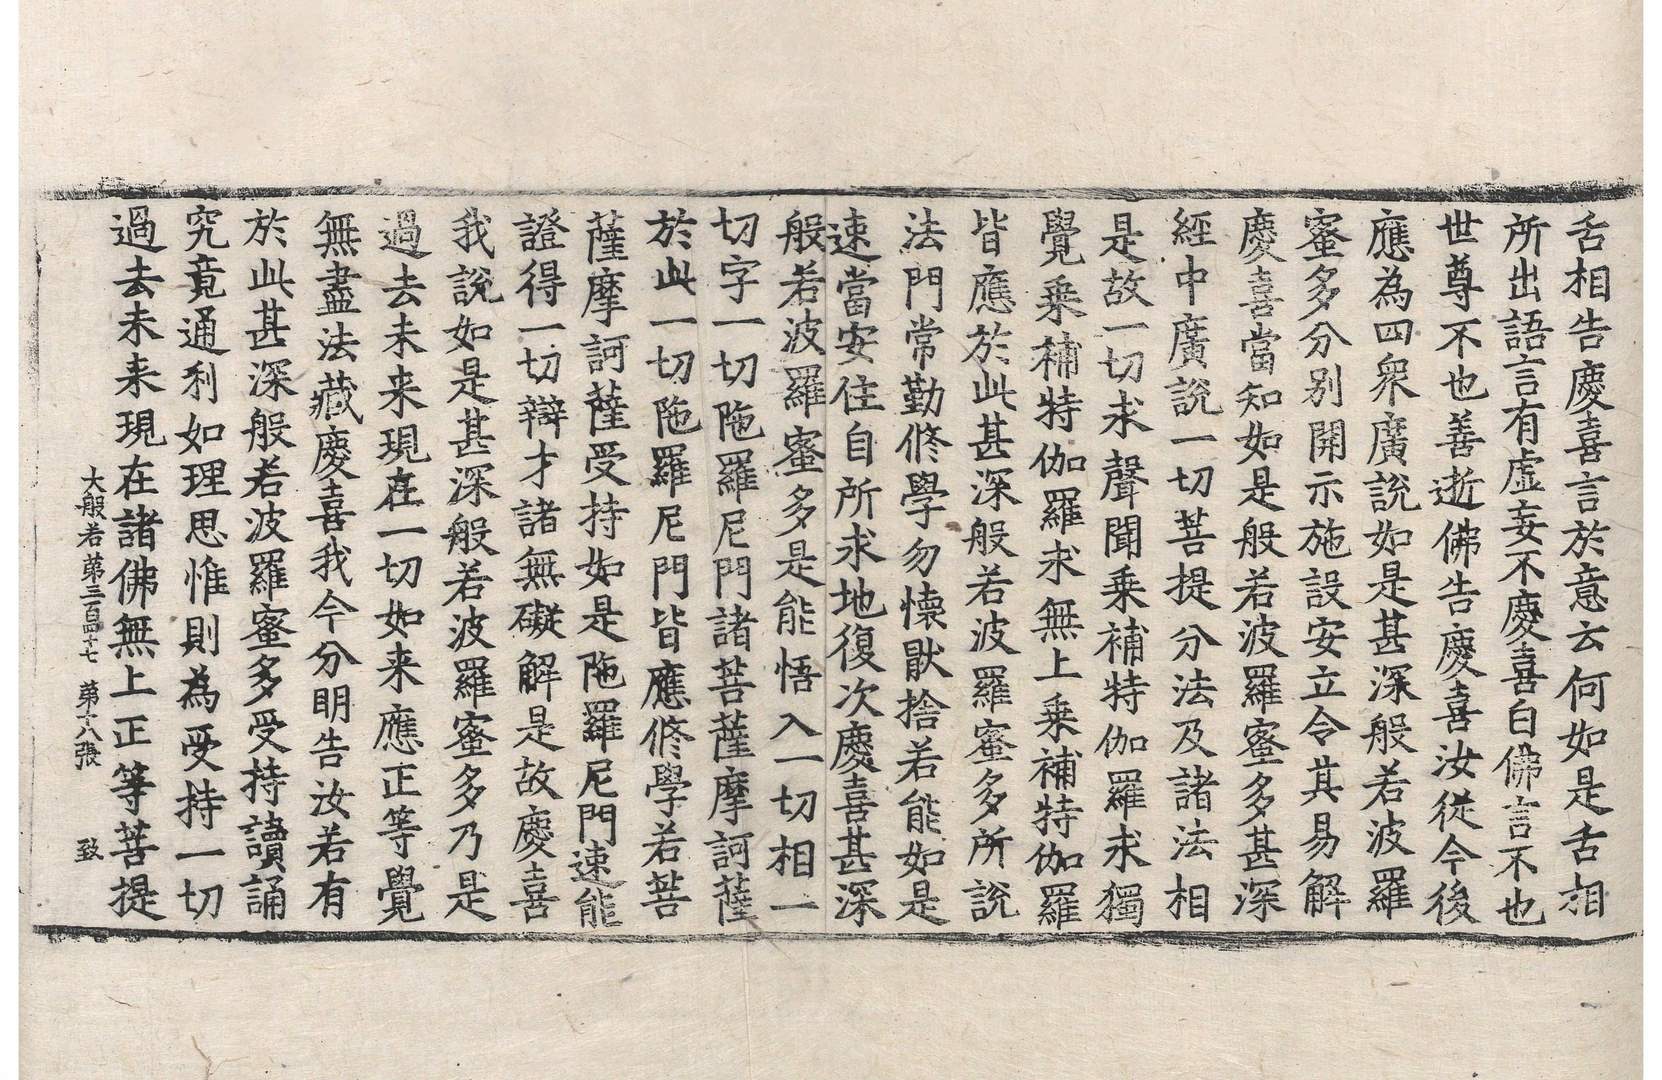 舌相告慶喜言於意云何如是舌相
所出語言有虛妄不慶喜白佛言不也
世尊不也善逝佛告慶喜汝從今後
應為四衆廣說如是甚深般若波羅
蜜多分別開示施設安立令其易解
慶喜當知如是般若波羅蜜多甚深
經中廣說一切菩提分法及諸法相
是故一切求聲聞乗補特伽羅求獨
覺乗補特伽羅求無上乗補特伽羅
皆應於此甚深般若波羅蜜多所說
法門常勤修學勿懷猒捨若能如是
速當安住自所求地復次慶喜甚深
般若波羅蜜多是能悟入一切相一
切字一切陁羅尼門諸菩薩摩訶薩
於此一切陁羅尼門皆應修學若菩
薩摩訶薩受持如是陁羅尼門速能
證得一切辯才諸無礙解是故慶喜
我說如是甚深般若波羅蜜多乃是
過去未来現在一切如来應正等覺
無盡法藏慶喜我今分明告汝若有
於此甚深般若波羅蜜多受持讀誦
究竟通利如理思惟則為受持一切
過去未来現在諸佛無上正等菩提
大般若第三百四十七 第十八張 致